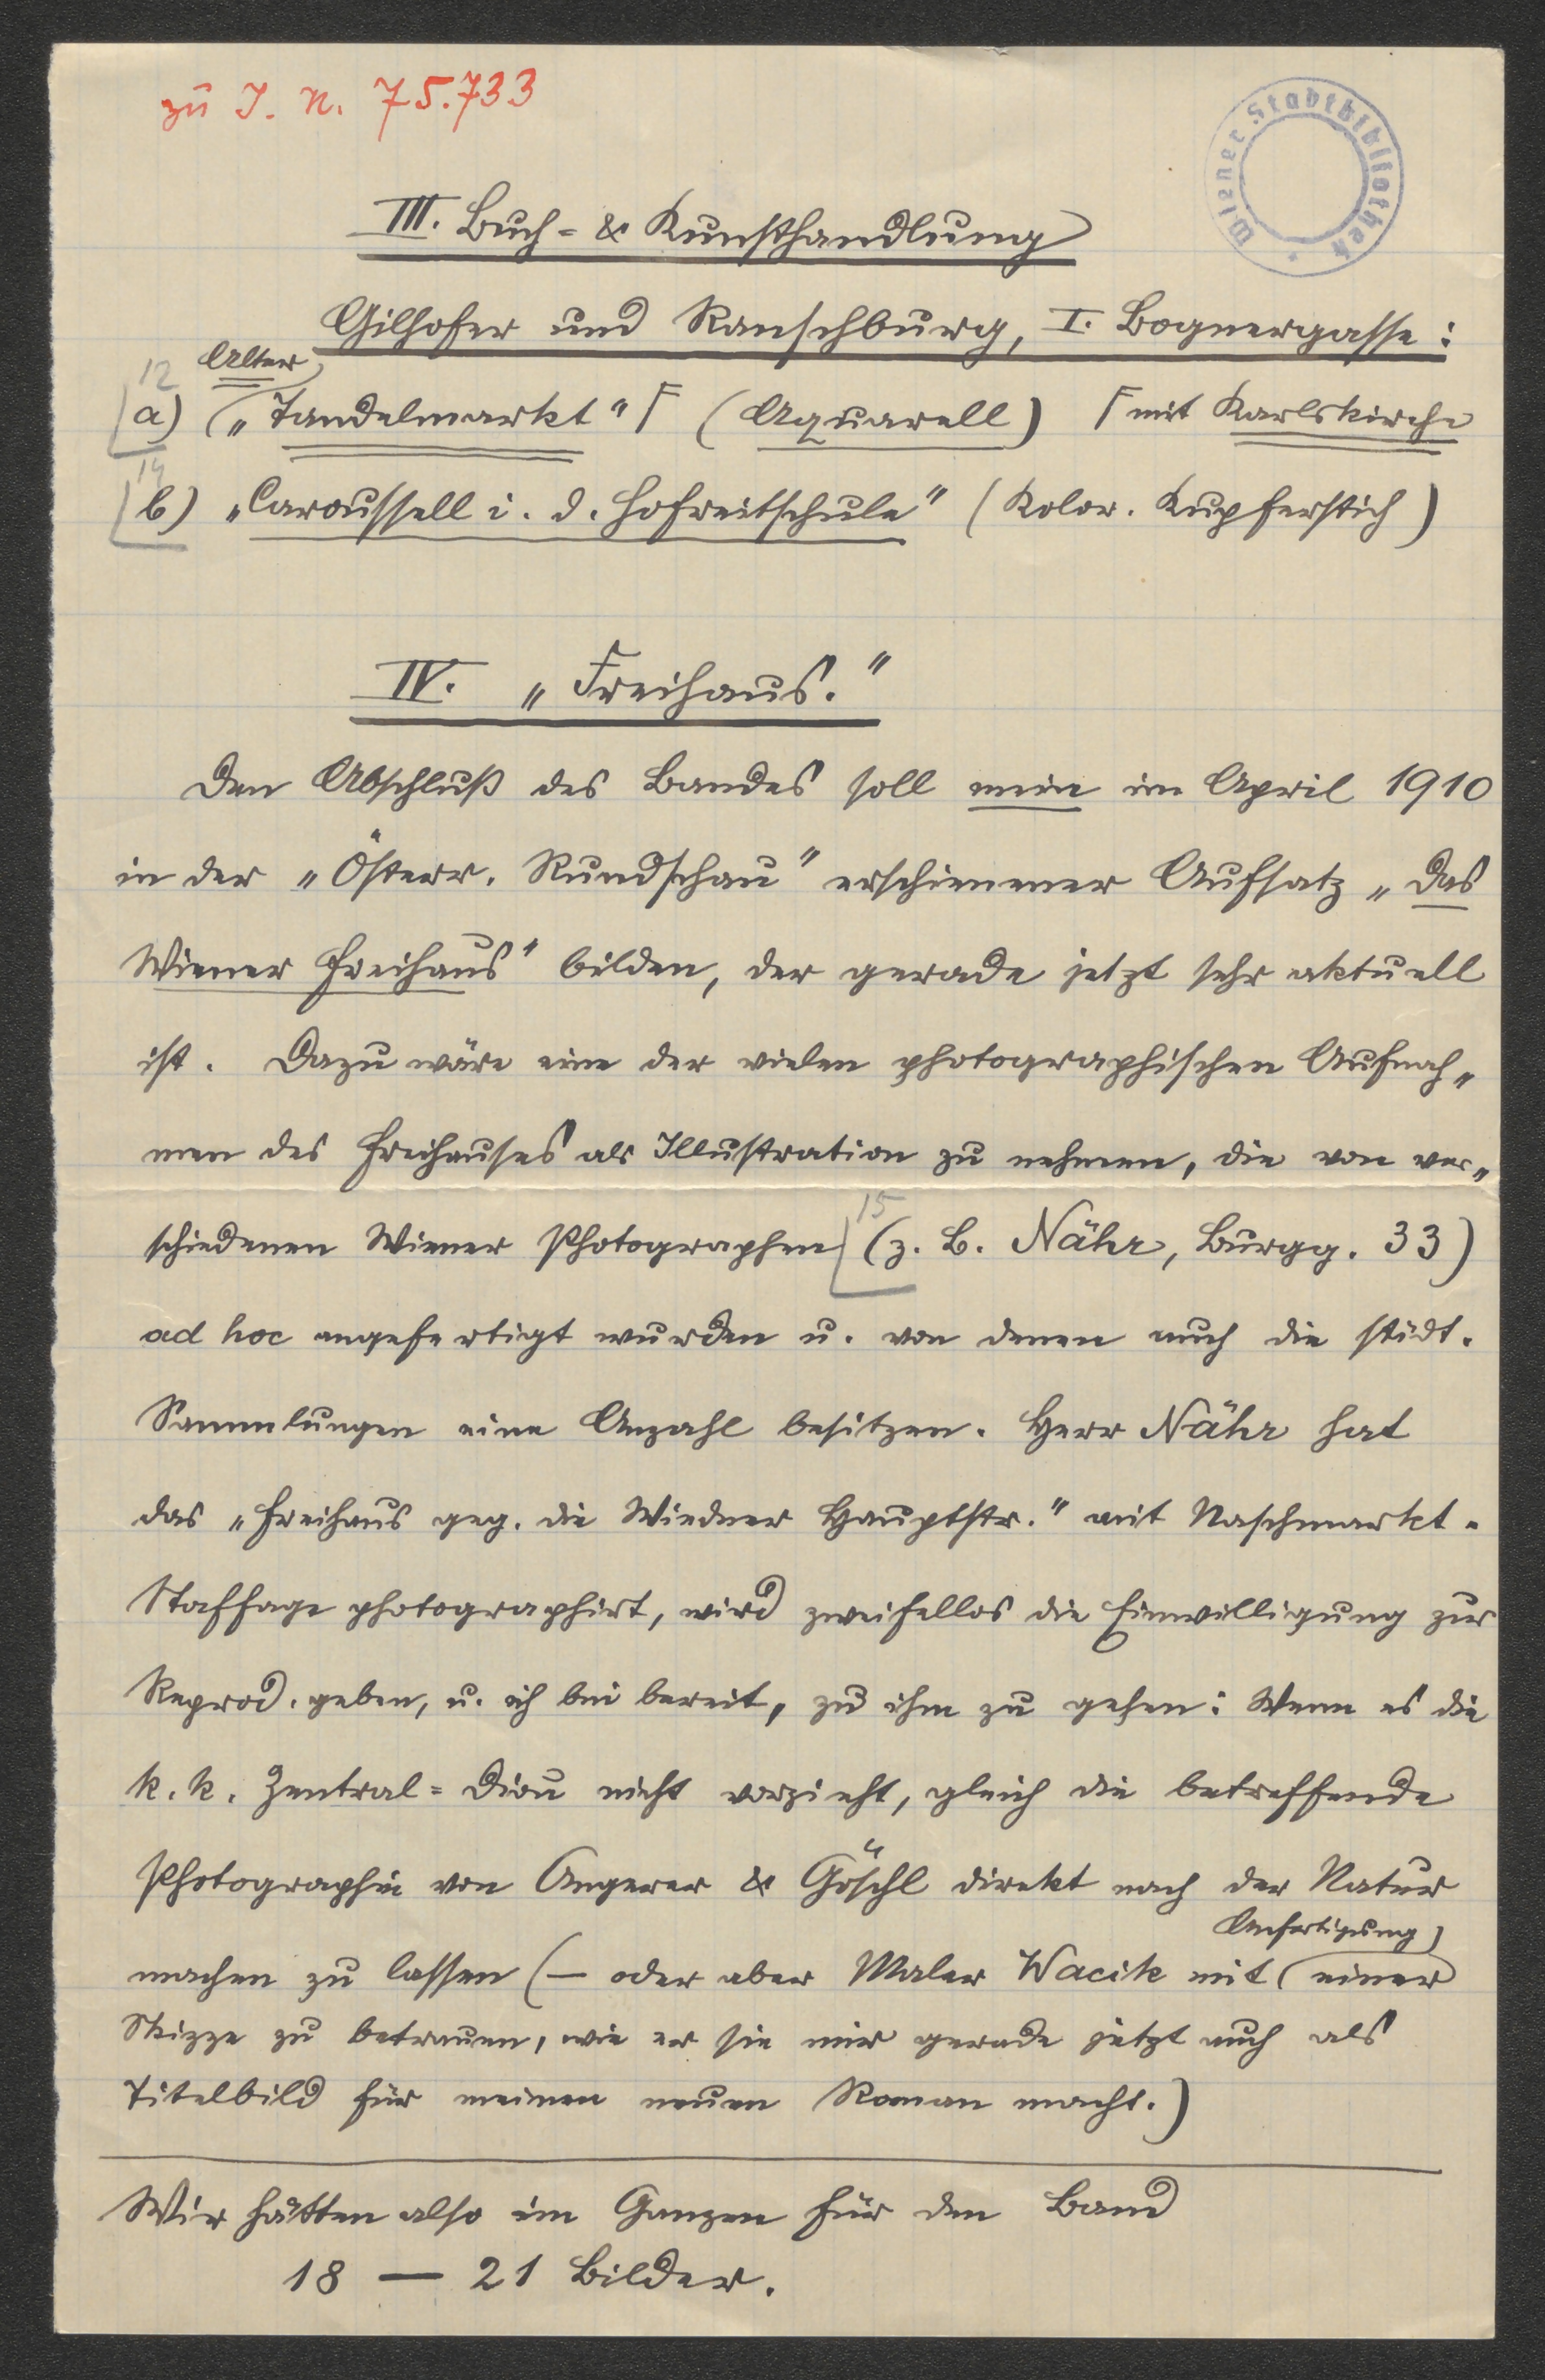 zu I. N. 75.733
Wiener Stadtbibliothek
III. Buch- & Kunsthandlung
Gilhofer und Ranschburg, I. Bognergasse:
12 Alter
a) „Tandelmarkt" ⌈ (Aquarell) ⌈ mit Karlskirche
14
b) „Caroussell i. d. Hofreitschule" (Kolor. Kupferstich)
IV. „Freihaus."
Den Abschluß des Bandes soll mein im April 1910
in der „Österr. Rundschau" erschienener Aufsatz „Das
Wiener Freihaus" bilden, der gerade jetzt sehr aktuell
ist. Dazu wäre eine der vielen photographischen Aufnah„
men des Freihauses als Illustration zu nehmen, die von ver„
15
schiedenen Wiener Photographen (z. B. Nähr, Burgg. 33)
ad hoc angefertigt wurden u. von denen auch die städt.
Sammlungen eine Anzahl besitzen. Herr Nähr hat
das „Freihaus geg. die Wiedner Hauptstr." mit Naschmarkt-
Staffage photographirt, wird zweifellos die Einwilligung zur
Reprod. geben, u. ich bin bereit, zu ihm zu gehen: Wenn es die
k. k. Zentral=Dion nicht vorzieht, gleich die betreffende
Photographie von Angerer & Göschl direkt nach der Natur
Anfertigung
machen zu lassen (— oder aber Maler Wacik mit einer
Skizze zu betrauen, wie er sie mir gerade jetzt auch als
Titelbild für meinen neuen Roman macht.)
Wir hätten also im Ganzen für den Band
18 — 21 Bilder.